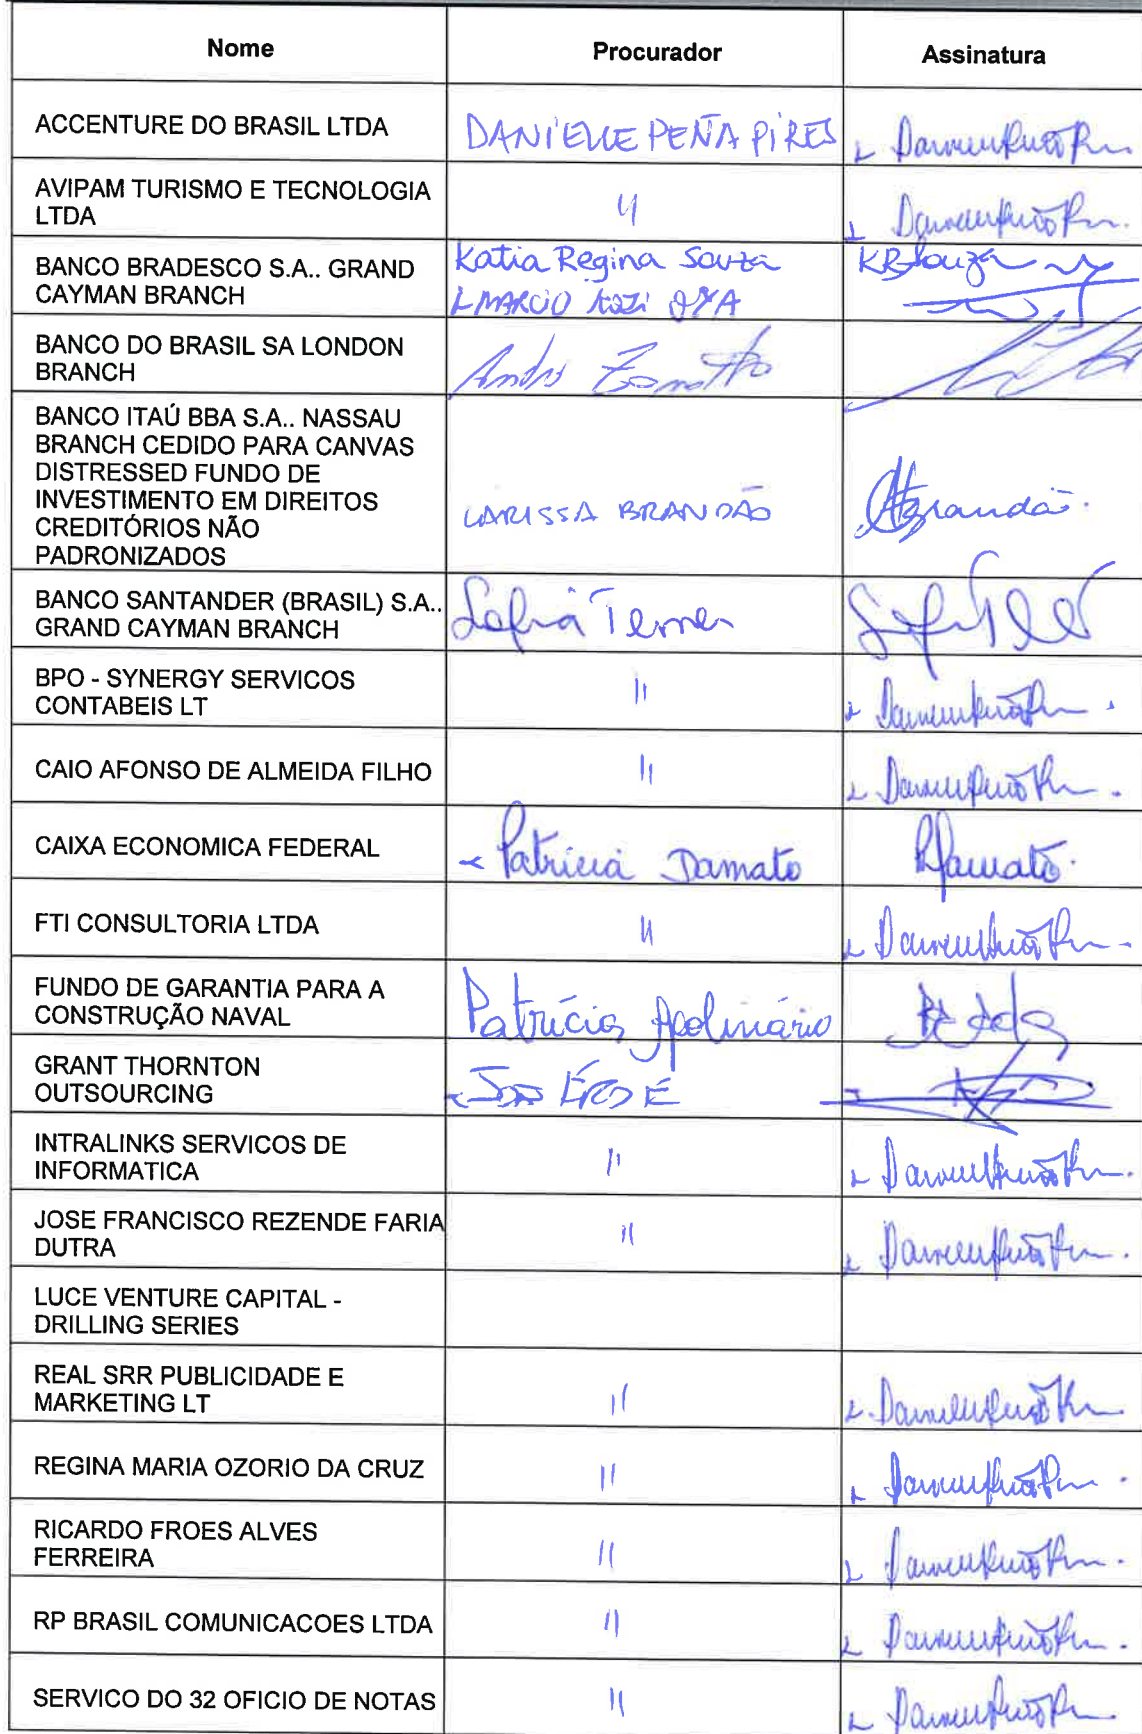 Nome Procurador Assinatura
ACCENTURE DO BRASIL LTDA DANIELLE PEÑA PIRES
AVIPAM TURISMO E TECNOLOGIA
LTDA "
BANCO BRADESCO S.A.. GRAND
CAYMAN BRANCH
Katia Regina Souza KRSouza
MARCIO
BANCO DO BRASIL SA LONDON
BRANCH
BANCO ITAÚ BBA S.A.. NASSAU
BRANCH CEDIDO PARA CANVAS
DISTRESSED FUNDO DE
INVESTIMENTO EM DIREITOS
CREDITÓRIOS NÃO
PADRONIZADOS
LARISSA BRANDÃO
BANCO SANTANDER (BRASIL) S.A..
GRAND CAYMAN BRANCH
BPO - SYNERGY SERVICOS
CONTABEIS LT "
CAIO AFONSO DE ALMEIDA FILHO "
CAIXA ECONOMICA FEDERAL Patricia Damato PDamato
FTI CONSULTORIA LTDA "
FUNDO DE GARANTIA PARA A
CONSTRUÇÃO NAVAL
Patrícia Apolinário
GRANT THORNTON
OUTSOURCING
INTRALINKS SERVICOS DE
INFORMATICA "
JOSE FRANCISCO REZENDE FARIA
DUTRA "
LUCE VENTURE CAPITAL -
DRILLING SERIES
REAL SRR PUBLICIDADE E
MARKETING LT "
REGINA MARIA OZORIO DA CRUZ "
RICARDO FROES ALVES
FERREIRA "
RP BRASIL COMUNICACOES LTDA "
SERVICO DO 32 OFICIO DE NOTAS "